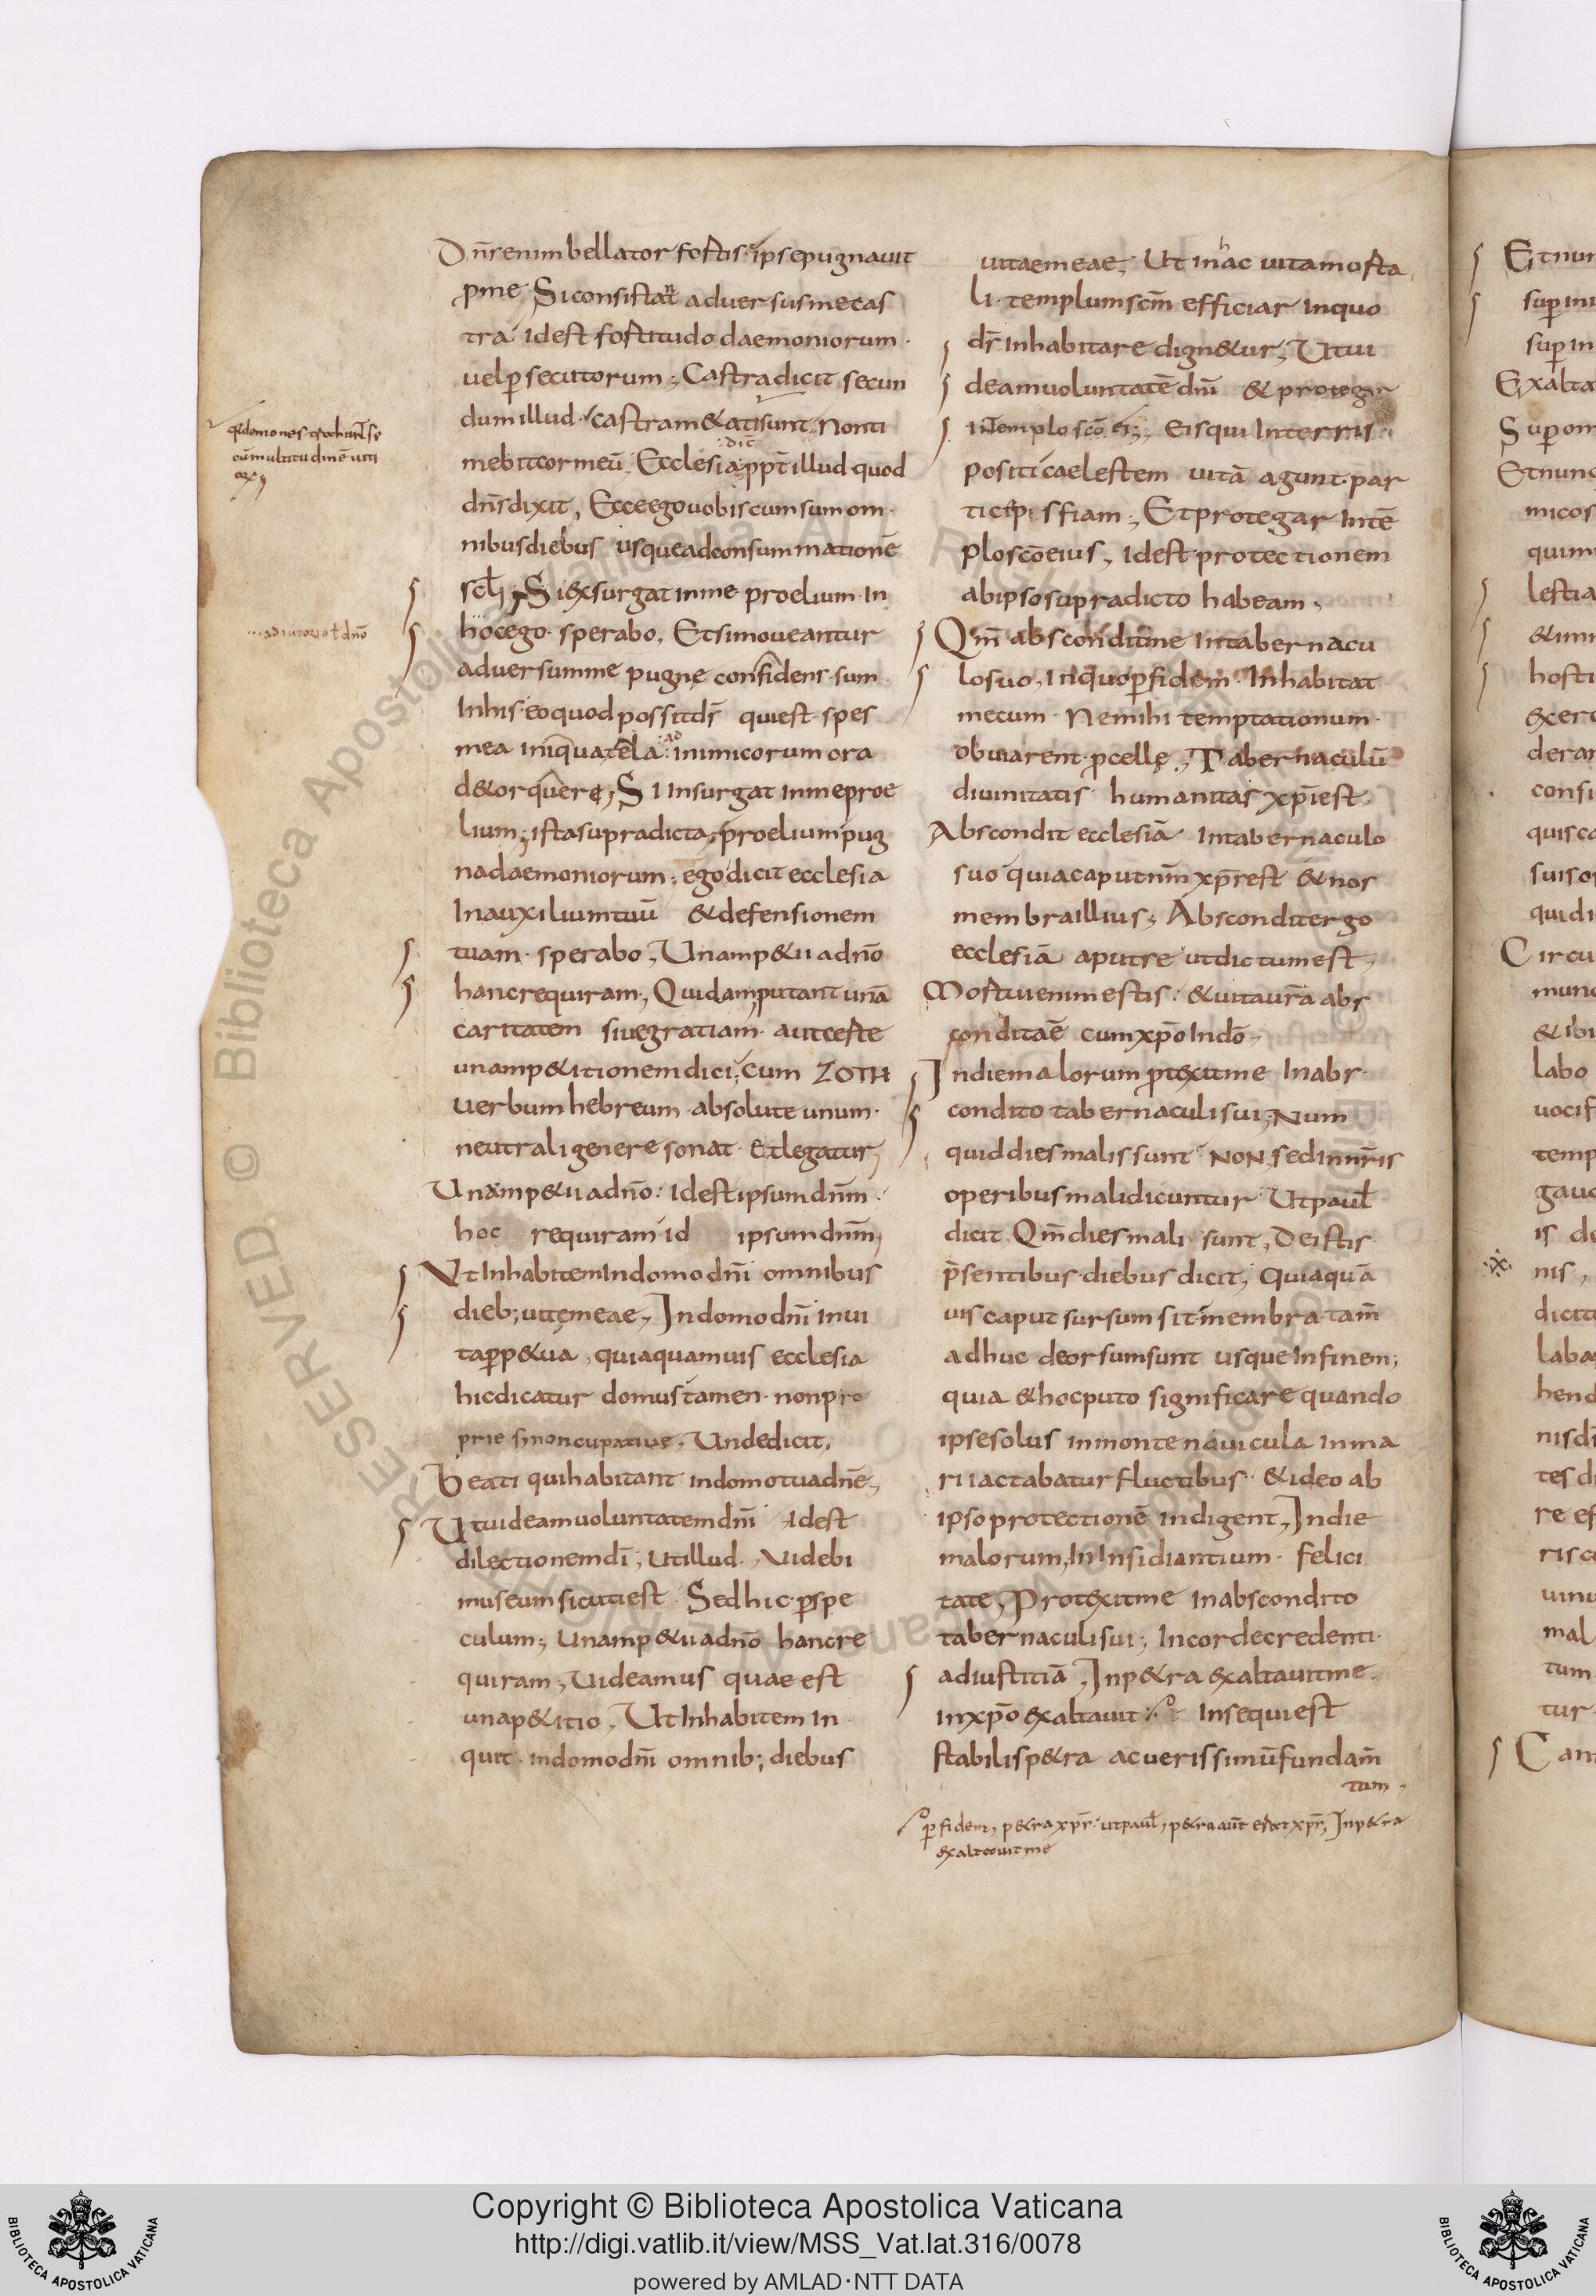 Dn̄s enim bellator fortis ipse pugnauit
ꝑ me, Si consistant aduersus me cas
tra idest fortitudo daemoniorum
uel ꝑsecutorum; Castra dicit secun
dum illud castram&ati sunt Non ti
mebit cor meū, Ecclesia dic̄ ppt̄ illud quod
dn̄s dixit, Ecce ego uobiscum sum om
nibus diebus usque ad consummationē
scl̄i; Si exsurgat in me proelium In
hoc ego sperabo, Etsi moueantur
aduersum me pugnę confidens sum
In his eo quod possit dr̄ qui est spes
mea
d&orquere, Si Insurgat in me proe
lium; ista supradicta, proelium pug
na daemoniorum; ego dicit ecclesia
In auxilium tuū &defensionem
tuam sperabo, Unam p&ii adn̄o
hanc requiram, Quidam putant unā
caritatem siue gratiam aut certe
unam p&itionem dici, cum ZOTH
uerbum hebreum absolute unum
neutrali genere sonat et legatur,
Unam p&ii adn̄o: Idest ipsum dn̄m
hoc requiram id ipsum dn̄m,
Vt Inhabitem In domo dn̄i omnibus
dieb; uitę meae, In domo dn̄i in ui
ta ꝑp&ua, quia quamuis ecclesia
hic dicatur domus tamen non pro
prie sz noncupatiue, Unde dicit,
Beati qui habitant in domo tua dn̄e,
Ut uideam uoluntatem dn̄i Idest
dilectionem dī, ut illud, Videbi
mus eum sicuti est Sed hic ꝑ spe
culum, unam p&ii adn̄o hanc re
quiram, Uideamus quae est
una p&itio, Ut Inhabitem In
quit in domo dn̄i omnib; diebus
uitae meae, Ut in hac uita morta
li templum scm̄ efficiar In quo
dr̄ inhabitare dign&ur, Ut ui
deam uoluntatē dn̄i & protegar
in Templo scō ei; Eis qui In terris
positi caelestem uitā agunt par
ticipis fiam; Et protegar In tē
plo scō eius, Idest protectionem
ab ipso supradicto habeam,
Qm̄ abscondit me In tabernacu
lo suo, In quo ꝑ fidem Inhabitat
mecum Ne mihi temptationum
obuiarent ꝓcellę, Tabernaculū
diuinitatis humanitas xp̄i est
Abscondit ecclesiā In tabernaculo
suo quia caput nm̄ xp̄s est & nos
membra illius, Abscondit ergo
ecclesiā a put̄re ut dictum est,
Mortui enim estis: & uita ur̄a abs
condita ē cum xp̄o In dō
In die malorum ꝓtexit me In abs
condito tabernaculi sui, Num
quid dies malis sunt NON, sed in nr̄is
operibus mali dicuntur Ut paul̄
dicit Qm̄ dies mali sunt, De istis
p̄sentibus diebus dicit, Quia quā
uis caput sursum sit membra tam̄
adhuc deorsum sunt usque In finem;
quia & hoc puto significare quando
ipse solus in monte nauicula in ma
ri iactabatur fluctibus & ideo ab
ipso protectionē indigent, In die
malorum, In Insidiantium felici
tate, Protexit me In abscondito
tabernaculi sui, In corde credenti
ad iustitiā, In p&ra exaltauit me
in xp̄o exaltauit In se qui est
stabilis p&ra ac uerissimū fundam̄
tum
ꝑ fidem, p&ra xp̄s ut paul̄, p&ra aut̄ erat xp̄s, In p&ra
exaltauit me
Copyright © Biblioteca Apostolica Vaticana
http://digi.vatlib.it/view/MSS_Vat.lat.316/0078
powered by AMLAD · NTT DATA
BIBLIOTECA APOSTOLICA VATICANA
BIBLIOTECA APOSTOLICA VATICANA